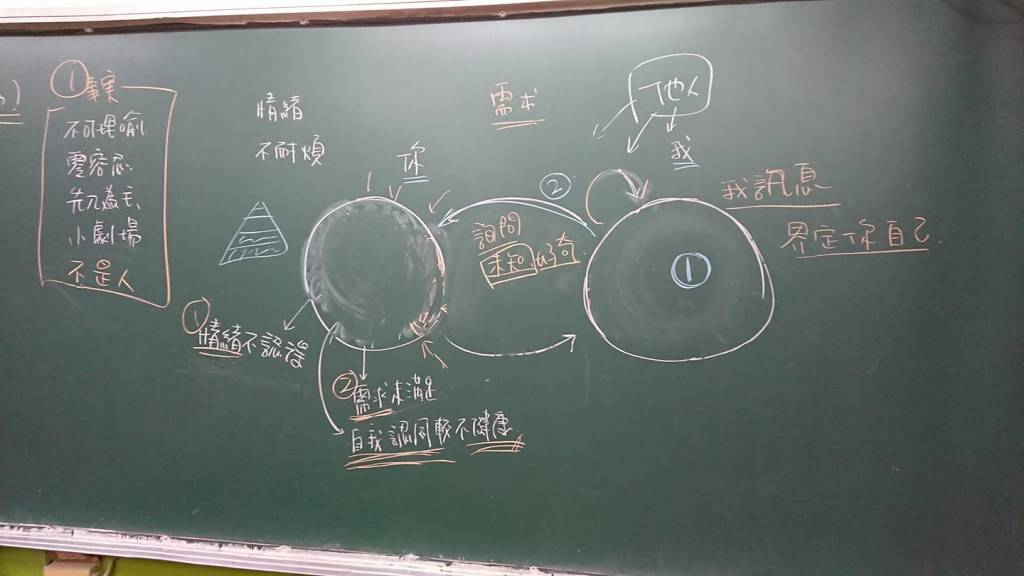 ①事實
不可理喻
零容忍
先入為主
小劇場
不是人
情緒
不耐煩
需求
他人
我
你
②
詢問
未知 好奇
我訊息
界定你自己
①
①情緒不認識
②需求未滿足
自我認同較不健康